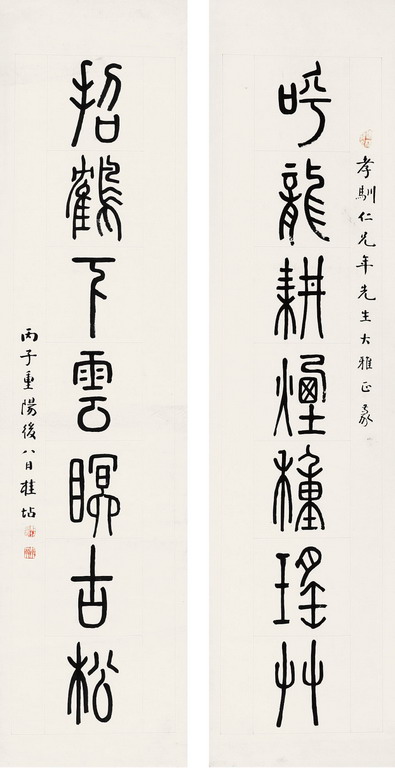 孝馴仁兄年先生大雅正篆
呼龍耕煙種瑤草
招鶴下雲瞑古松
丙子重陽後八日桂坫